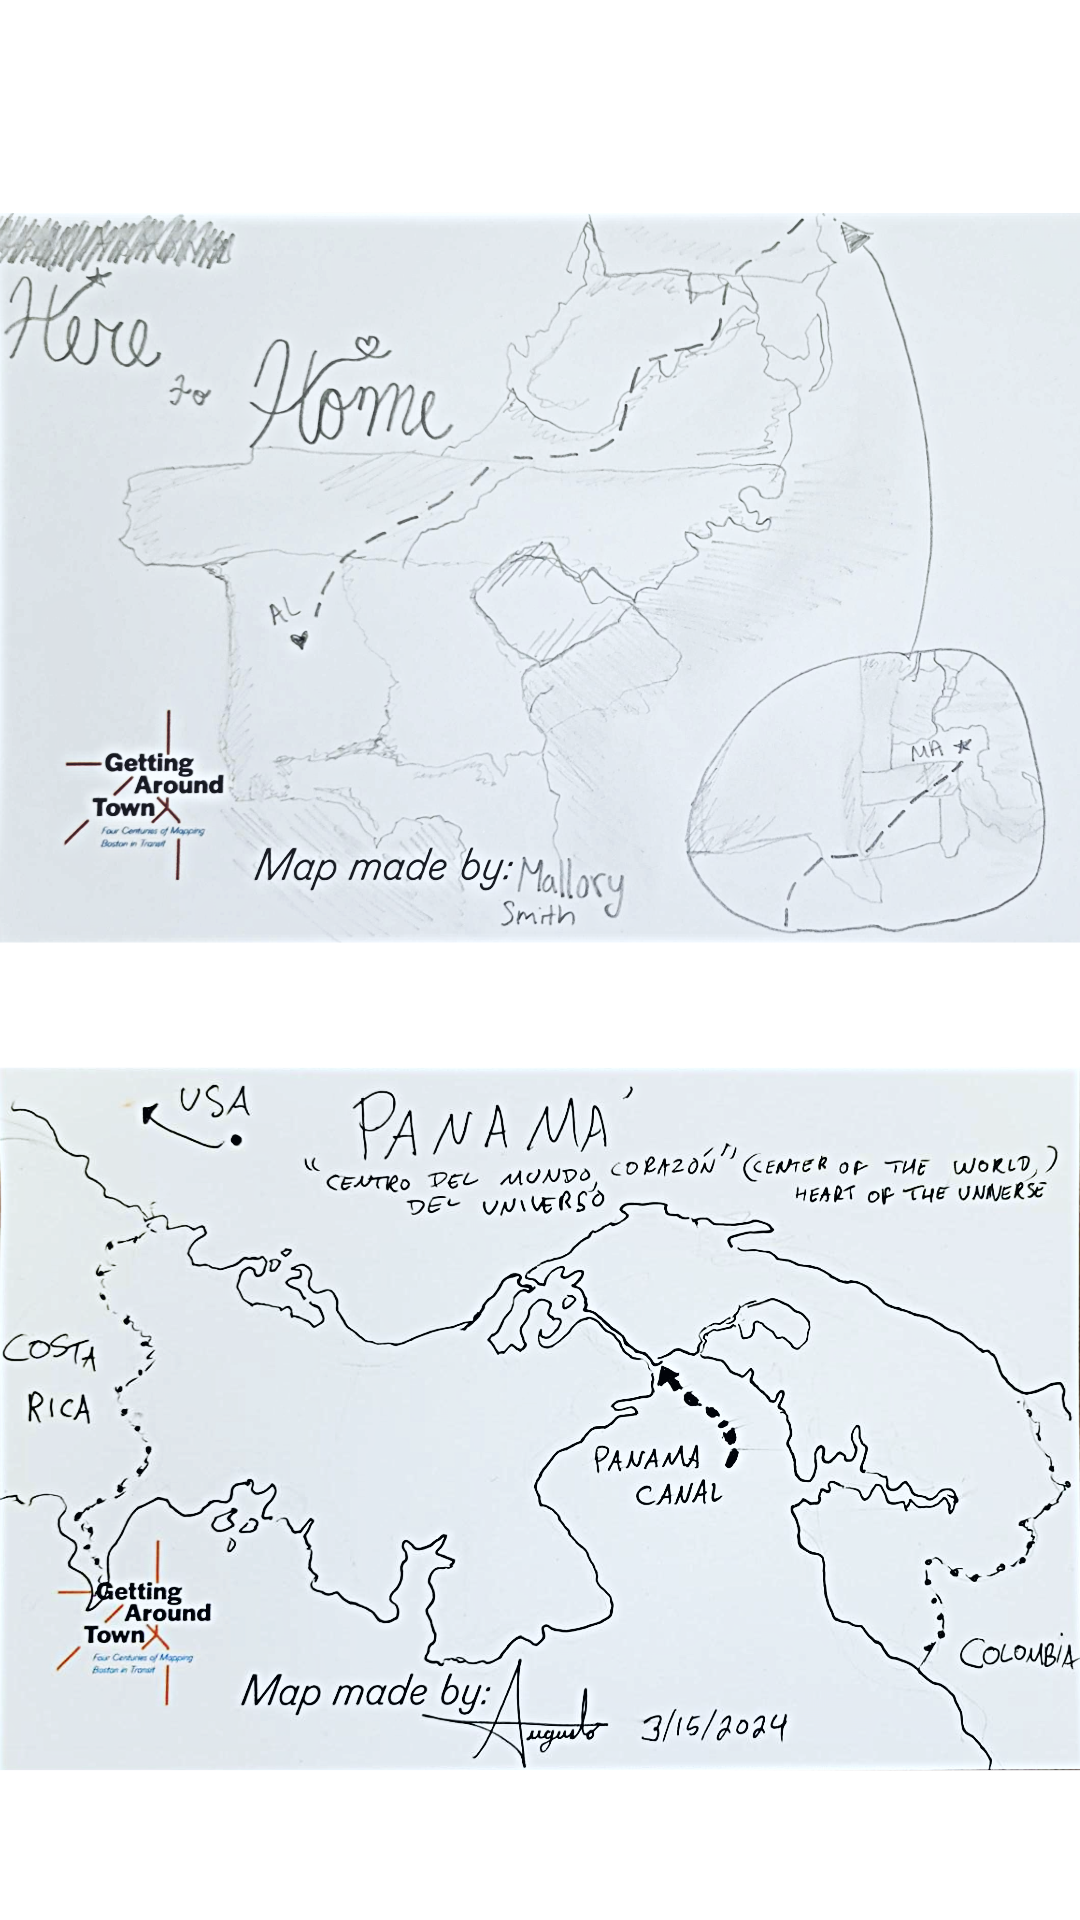 Here
to
Home
AL
MA
Getting
Around
Town
Four Centuries of Mapping
Boston in Transit
Map made by: Mallory
Smith
USA
PANAMÁ
"CENTRO DEL MUNDO, CORAZÓN" (CENTER OF THE WORLD,)
DEL UNIVERSO HEART OF THE UNIVERSE
COSTA
RICA
PANAMA
CANAL
COLOMBIA
Getting
Around
Town
Four Centuries of Mapping
Boston in Transit
Map made by: Augusto 3/15/2024